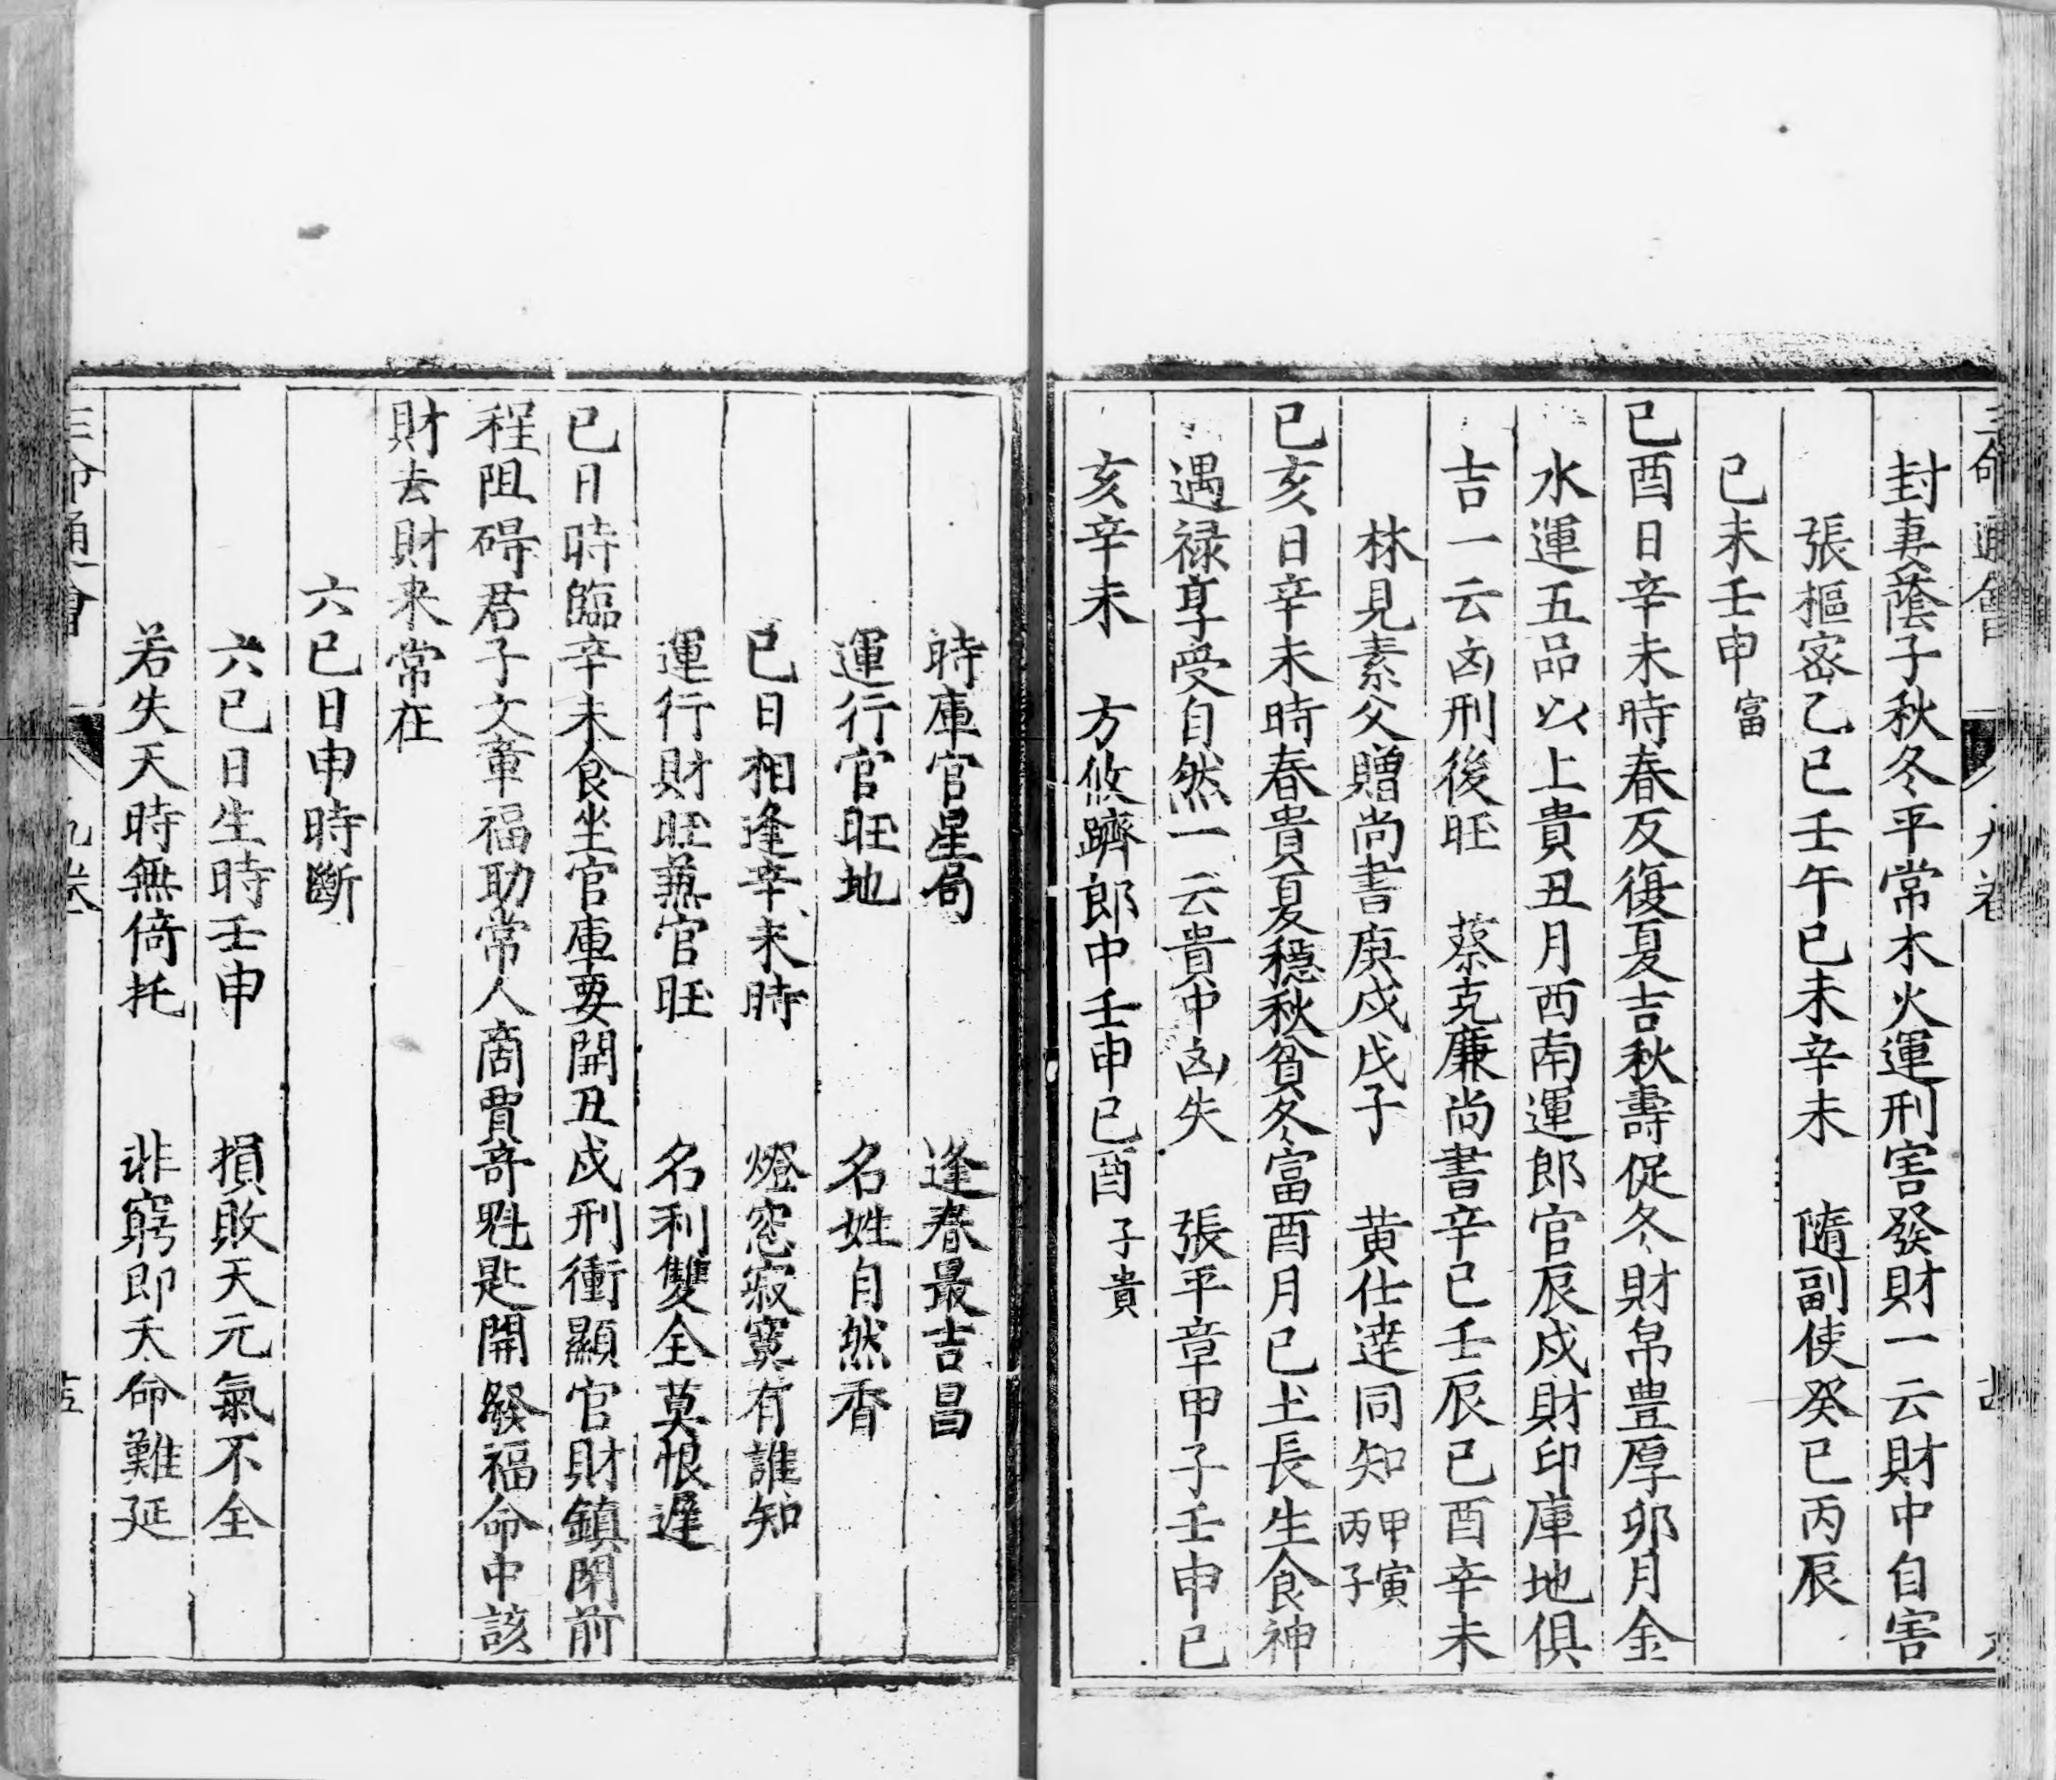 三命通會
封妻蔭子秋冬平常木火運刑害發財一云財中自害
張樞宻乙巳壬午己未辛未　隨副使癸巳丙辰
己未壬申富
己酉日辛未時春反復夏吉秋壽促冬財帛豊厚卯月金
水運五品以上貴丑月西南運郎官辰戍財印庫地俱
吉一云凶刑後旺　蔡克廉尚書辛巳壬辰己酉辛未
林見素父贈尚書庚戍戊子　黄仕達同知甲寅丙子
己亥日辛未時春貴夏穏秋貧冬富酉月己土長生食神
遇禄享受自然一云貴中凶失　張平章甲子壬申己
亥辛未　方攸躋郎中壬申己酉子貴
時庫官星局　逢春最吉昌
運行官旺地　名姓自然香
己日相逢辛未時　燈窓寂寞有誰知
運行財旺兼官旺　名利雙全莫恨遲
己日時臨辛未食坐官庫要開丑戍刑衝顯官財鎮閉前
程阻碍君子文章福助常人啇賈竒甡匙開發福命中該
財去財来常在
六己日申時斷
六己日生時壬申　損敗天元氣不全
若失天時無倚托　非窮即夭命難延
三命通會　九卷